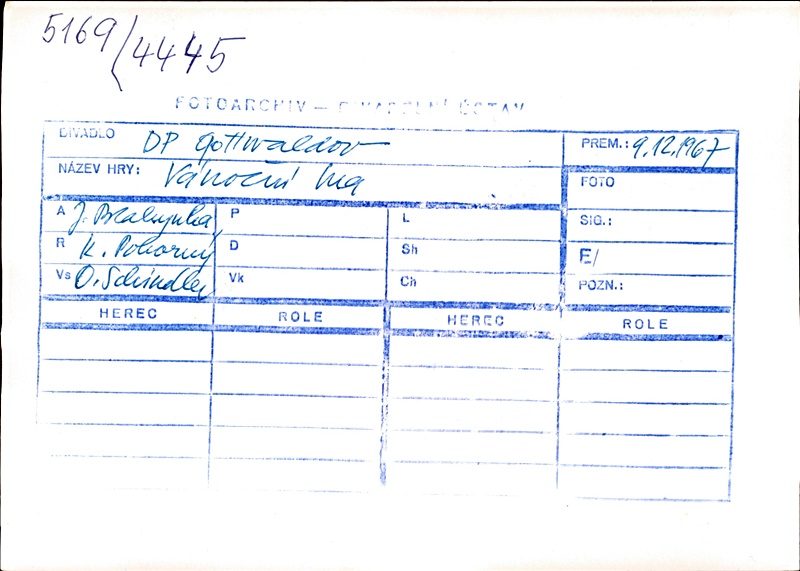 5169/4445
FOTOARCHIV — DIVADELNÍ ÚSTAV
DIVADLO DP Gottwaldov
PREM.: 9.12.1967
NÁZEV HRY: Vánoční hra
FOTO
A J.
P
L
SIG.:
R K. Pokorný
D
Sh
E/
Vs O. Schindler
Vk
Ch
POZN.:
HEREC ROLE HEREC ROLE